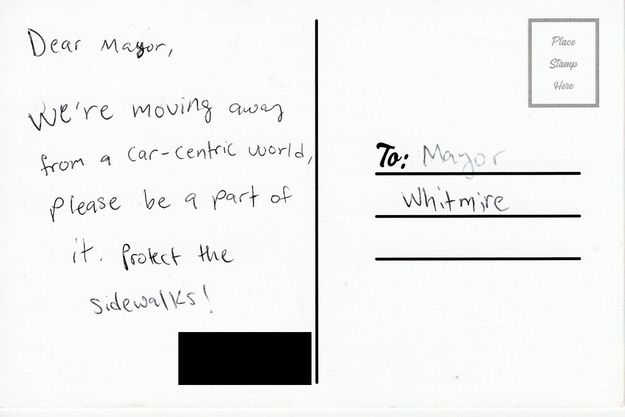 Dear Mayor,
We're moving away
from a car-centric world,
please be a part of
it. Protect the
sidewalks!
Place
Stamp
Here
To: Mayor
Whitmire